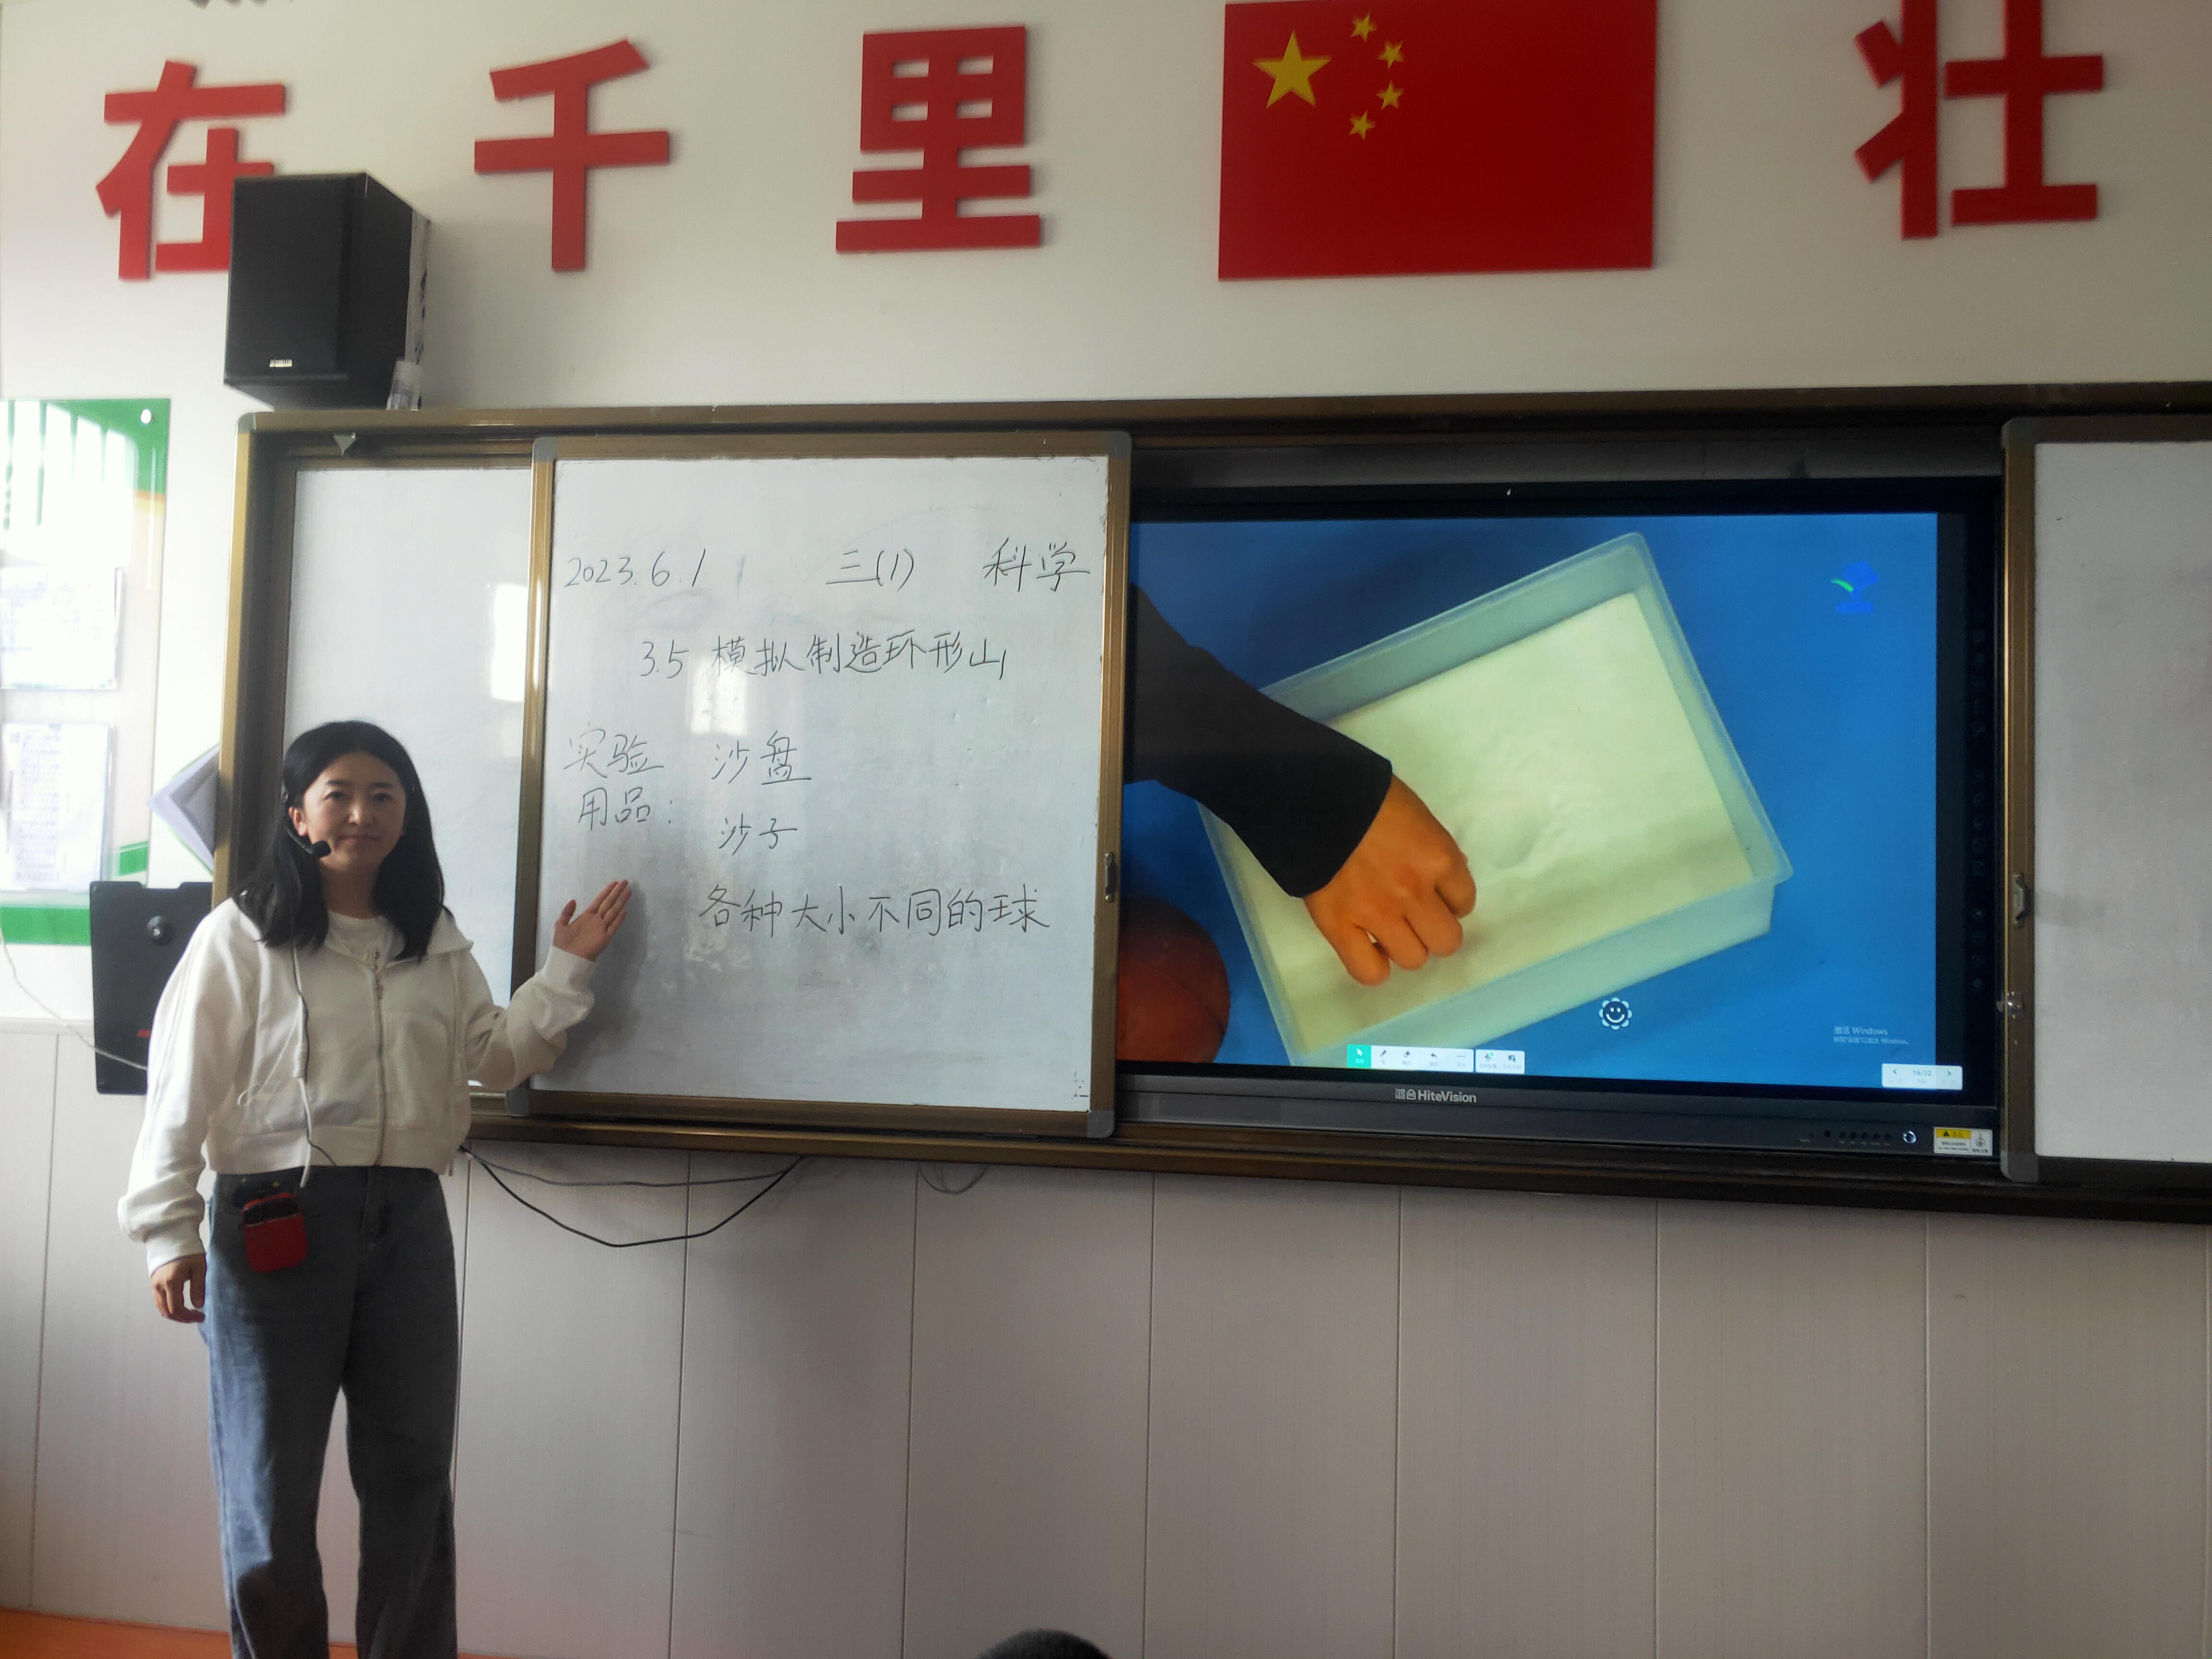 在千里 壮
2023.6.1 三(1) 科学
3.5 模拟制造环形山
实验 沙盘
用品:
沙子
各种大小不同的球
激活 Windows
16/22
鸿合HiteVision